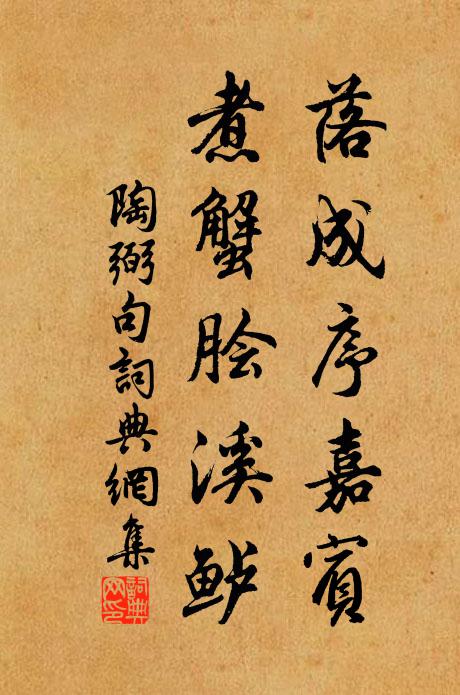 落成序嘉賓
煮蟹膾溪鲈
陶弼句詞典網集
詞典网印